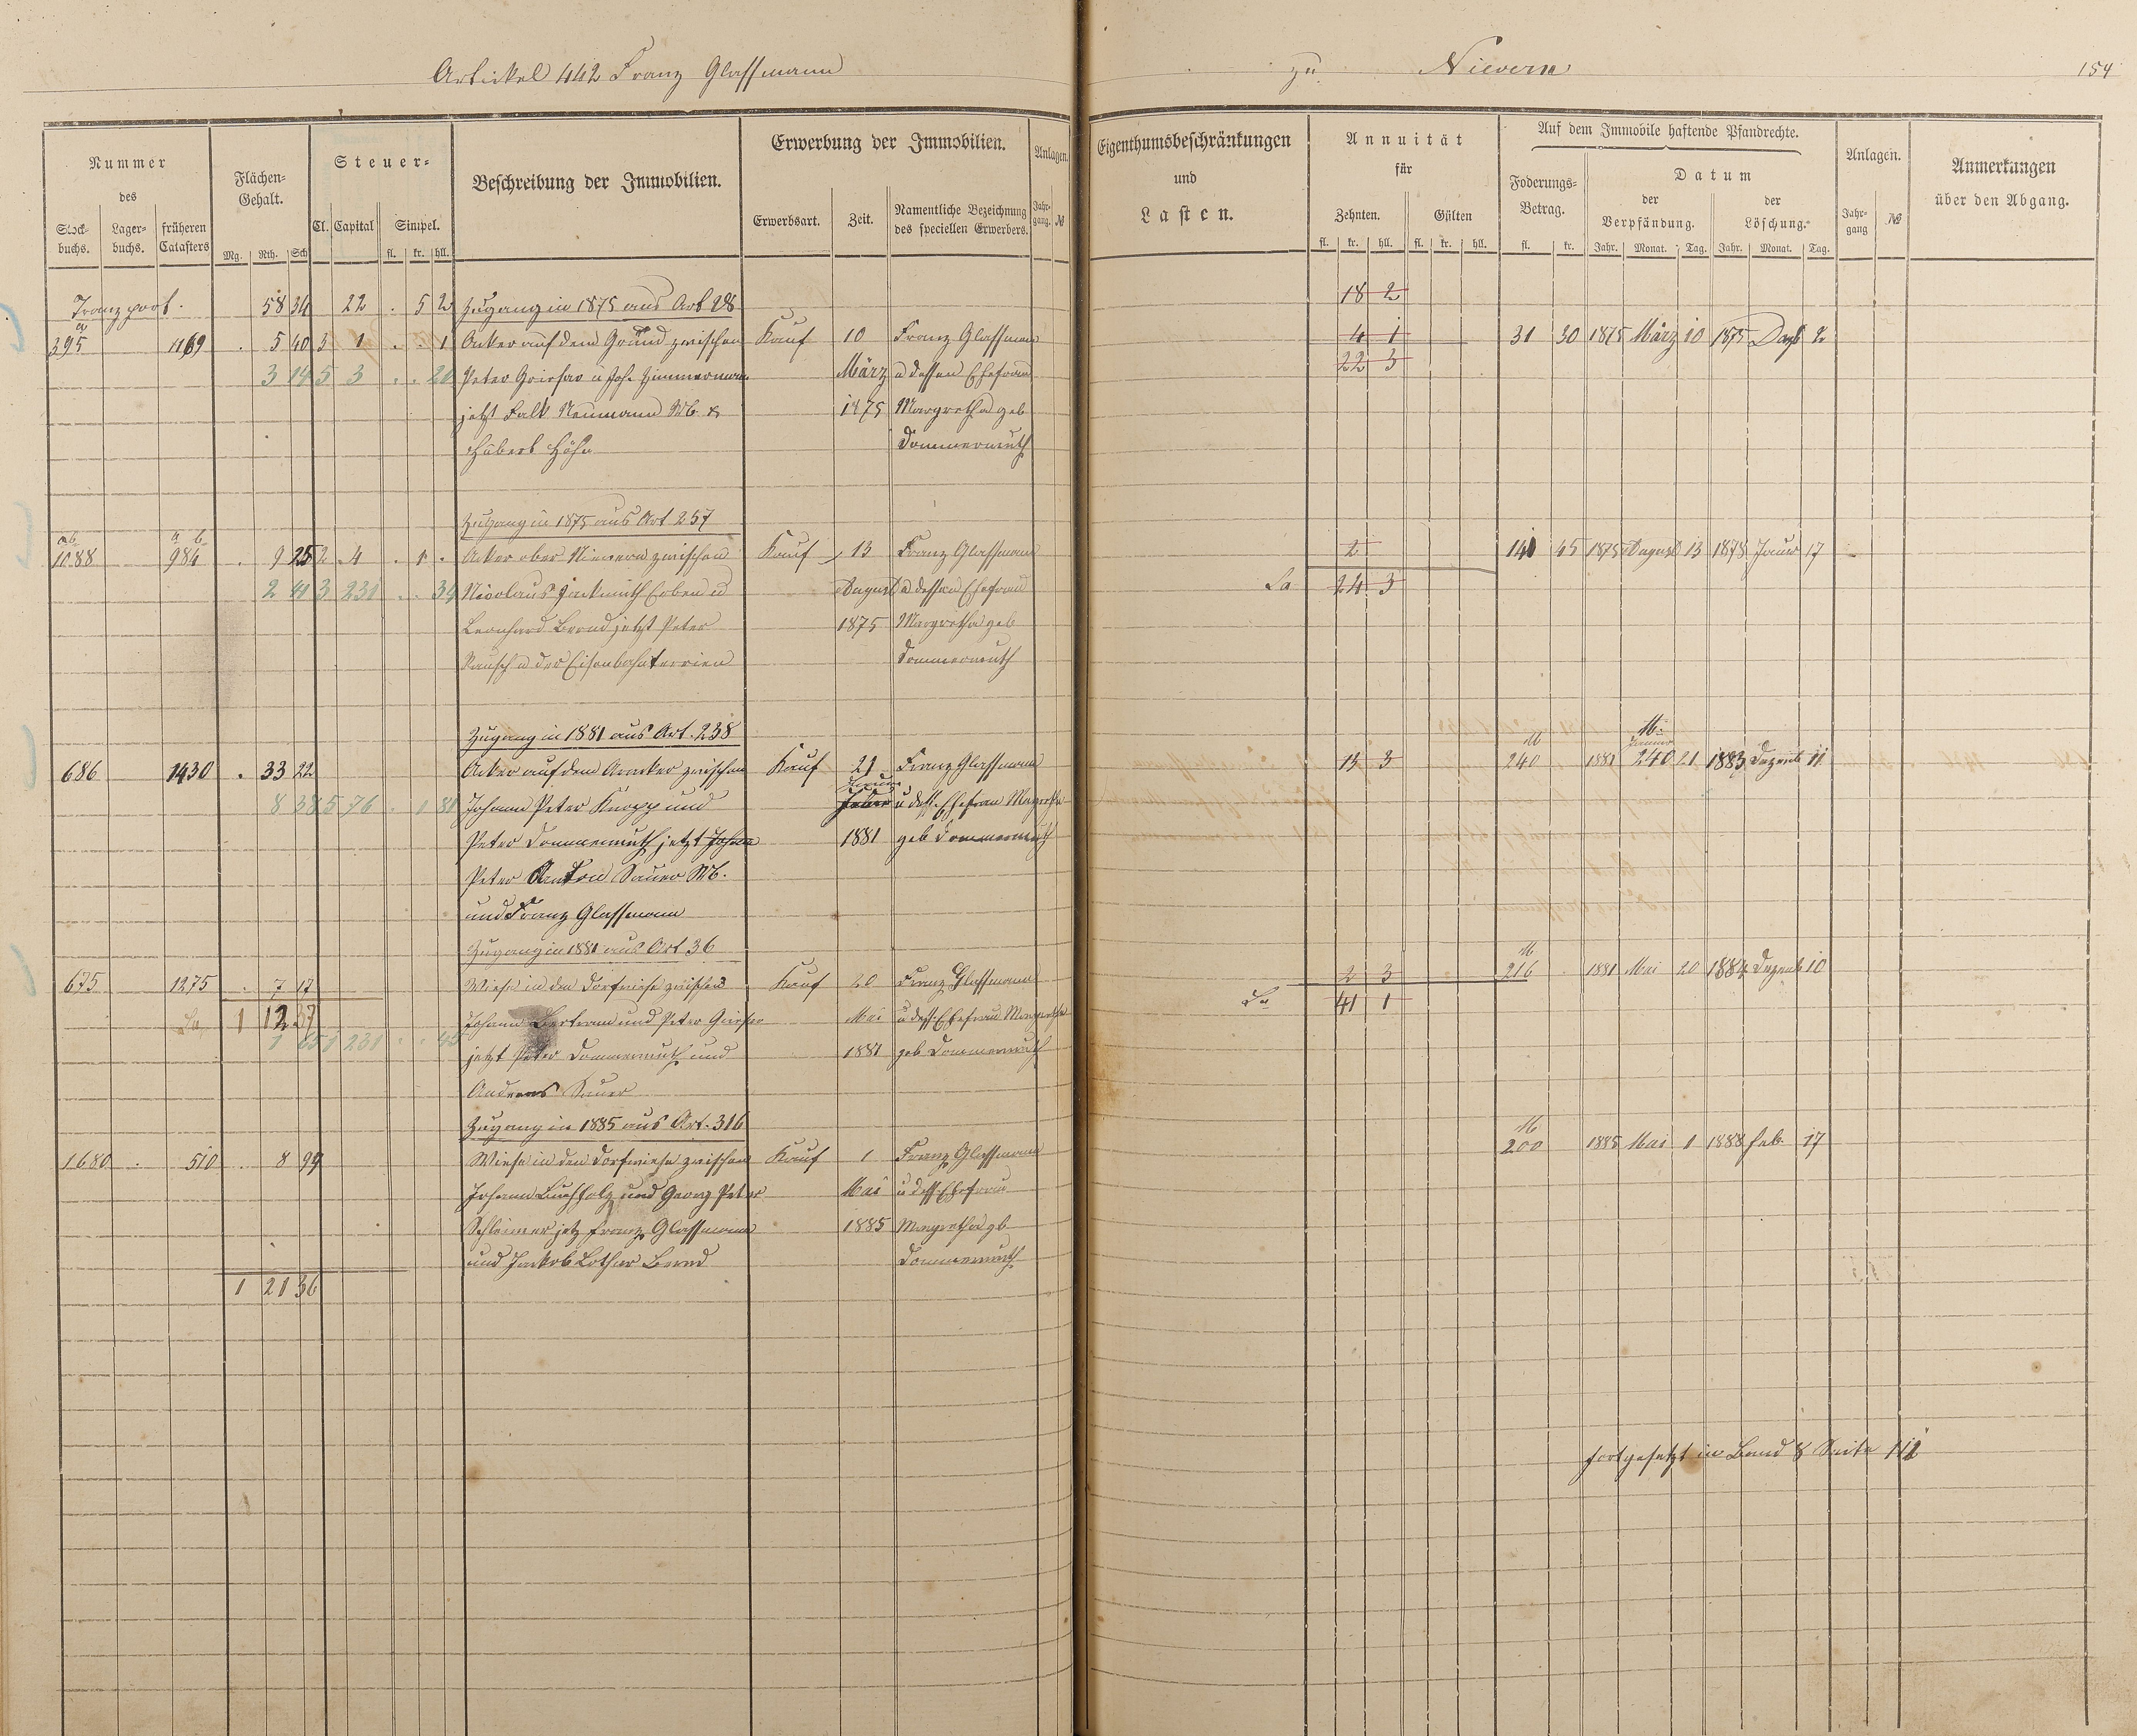 Artickel 442 Franz Glassmann zu Nievern 154
Nummer des
Stock-buchs. Lager-buchs. früheren Catasters
Flächen-Gehalt.
Mg. Rth. Sch
Steuer-
Cl. Capital Simpel.
fl. kr. hll.
Beschreibung der Immobilien.
Erwerbung der Immobilien.
Erwerbsart. Zeit. Namentliche Bezeichnung des speciellen Erwerbers.
Anlagen.
Jahr-gang. №
Eigenthumsbeschränkungen und Lasten.
Annuität für
Zehnten. Gülten
fl. kr. hll. fl. kr. hll.
Auf dem Immobile haftende Pfandrechte.
Foderungs-Betrag.
fl. kr.
Datum
der Verpfändung. der Löschung.
Jahr. Monat. Tag. Jahr. Monat. Tag.
Anlagen.
Jahr-gang №
Anmerkungen über den Abgang.
Transport. 58 34 22 . 5 2 Zugang in 1875 aus Art 28 18 2
395 1169 . 5 40 3 1 . . 1 Acker auf dem Gründ zwischen Kauf 10 Franz Glassmann 4 1 31 30 1875 März 10 1875 2
3 14 5 3 . . 20 Peter u Joh. Zimmermann März u dessen Ehefrau 22 3
jetzt Falk Neumann Wb & 1875 Margretha geb
Hubert Höhn Dommermuth
Zugang in 1875 aus Art 257
ab a b
1088 984 . 9 25 2 4 . 1 . Acker ober Nievern zwischen Kauf 13 Franz Glassmann 2 140 45 1875 August 13 1878 Januar 17
2 31 3 231 . . 34 Nicolaus Erben u August u dessen Ehefrau Sa 24 3
Leonhard Bernd jetzt Peter 1875 Margretha geb
Rausch u der Eisenbahnterrien Dommermuth
Zugang in 1881 aus Art. 238
686 1430 . 33 22 Acker auf dem zwischen Kauf 21 Franz Glassmann 15 3 M 240 1881 Januar 21 1883 Dezemb 11
8 38 5 76 . 1 81 Johann Peter Knopp und Januar u dess. Ehefrau Margretha
Peter Dommermuth jetzt Johann 1881 geb Dommermuth
Peter Anton Sauer Wb.
und Franz Glassmann
Zugang in 1881 aus Art 36
675 1275 . 7 17 Wiese in der Dorfwiese zwischen Kauf 20 Franz Glassmann 2 3 M 216 1881 Mai 20 1884 Dezemb 10
Sa 1 12 37 Johann Bertram und Peter Mai u dess. Ehefrau Margretha Sa 41 1
1 231 . . 45 jetzt Peter Dommermuth und 1881 geb Dommermuth
Andreas Sauer
Zugang in 1885 aus Art. 316
1680 . 510 . 8 99 Wiese in den Dorfwiese zwischen Kauf 1 Franz Glassmann M 200 1885 Mai 1 1888 Feb. 17
Johann Buchholz und Georg Peter Mai u dess. Ehefrau
Schleimer jetz Franz Glassmann 1885 Margretha gb
und Jackob Lothar Bernd Dommermuth
1 21 36
fortgesetzt in Band 8 Seite 112